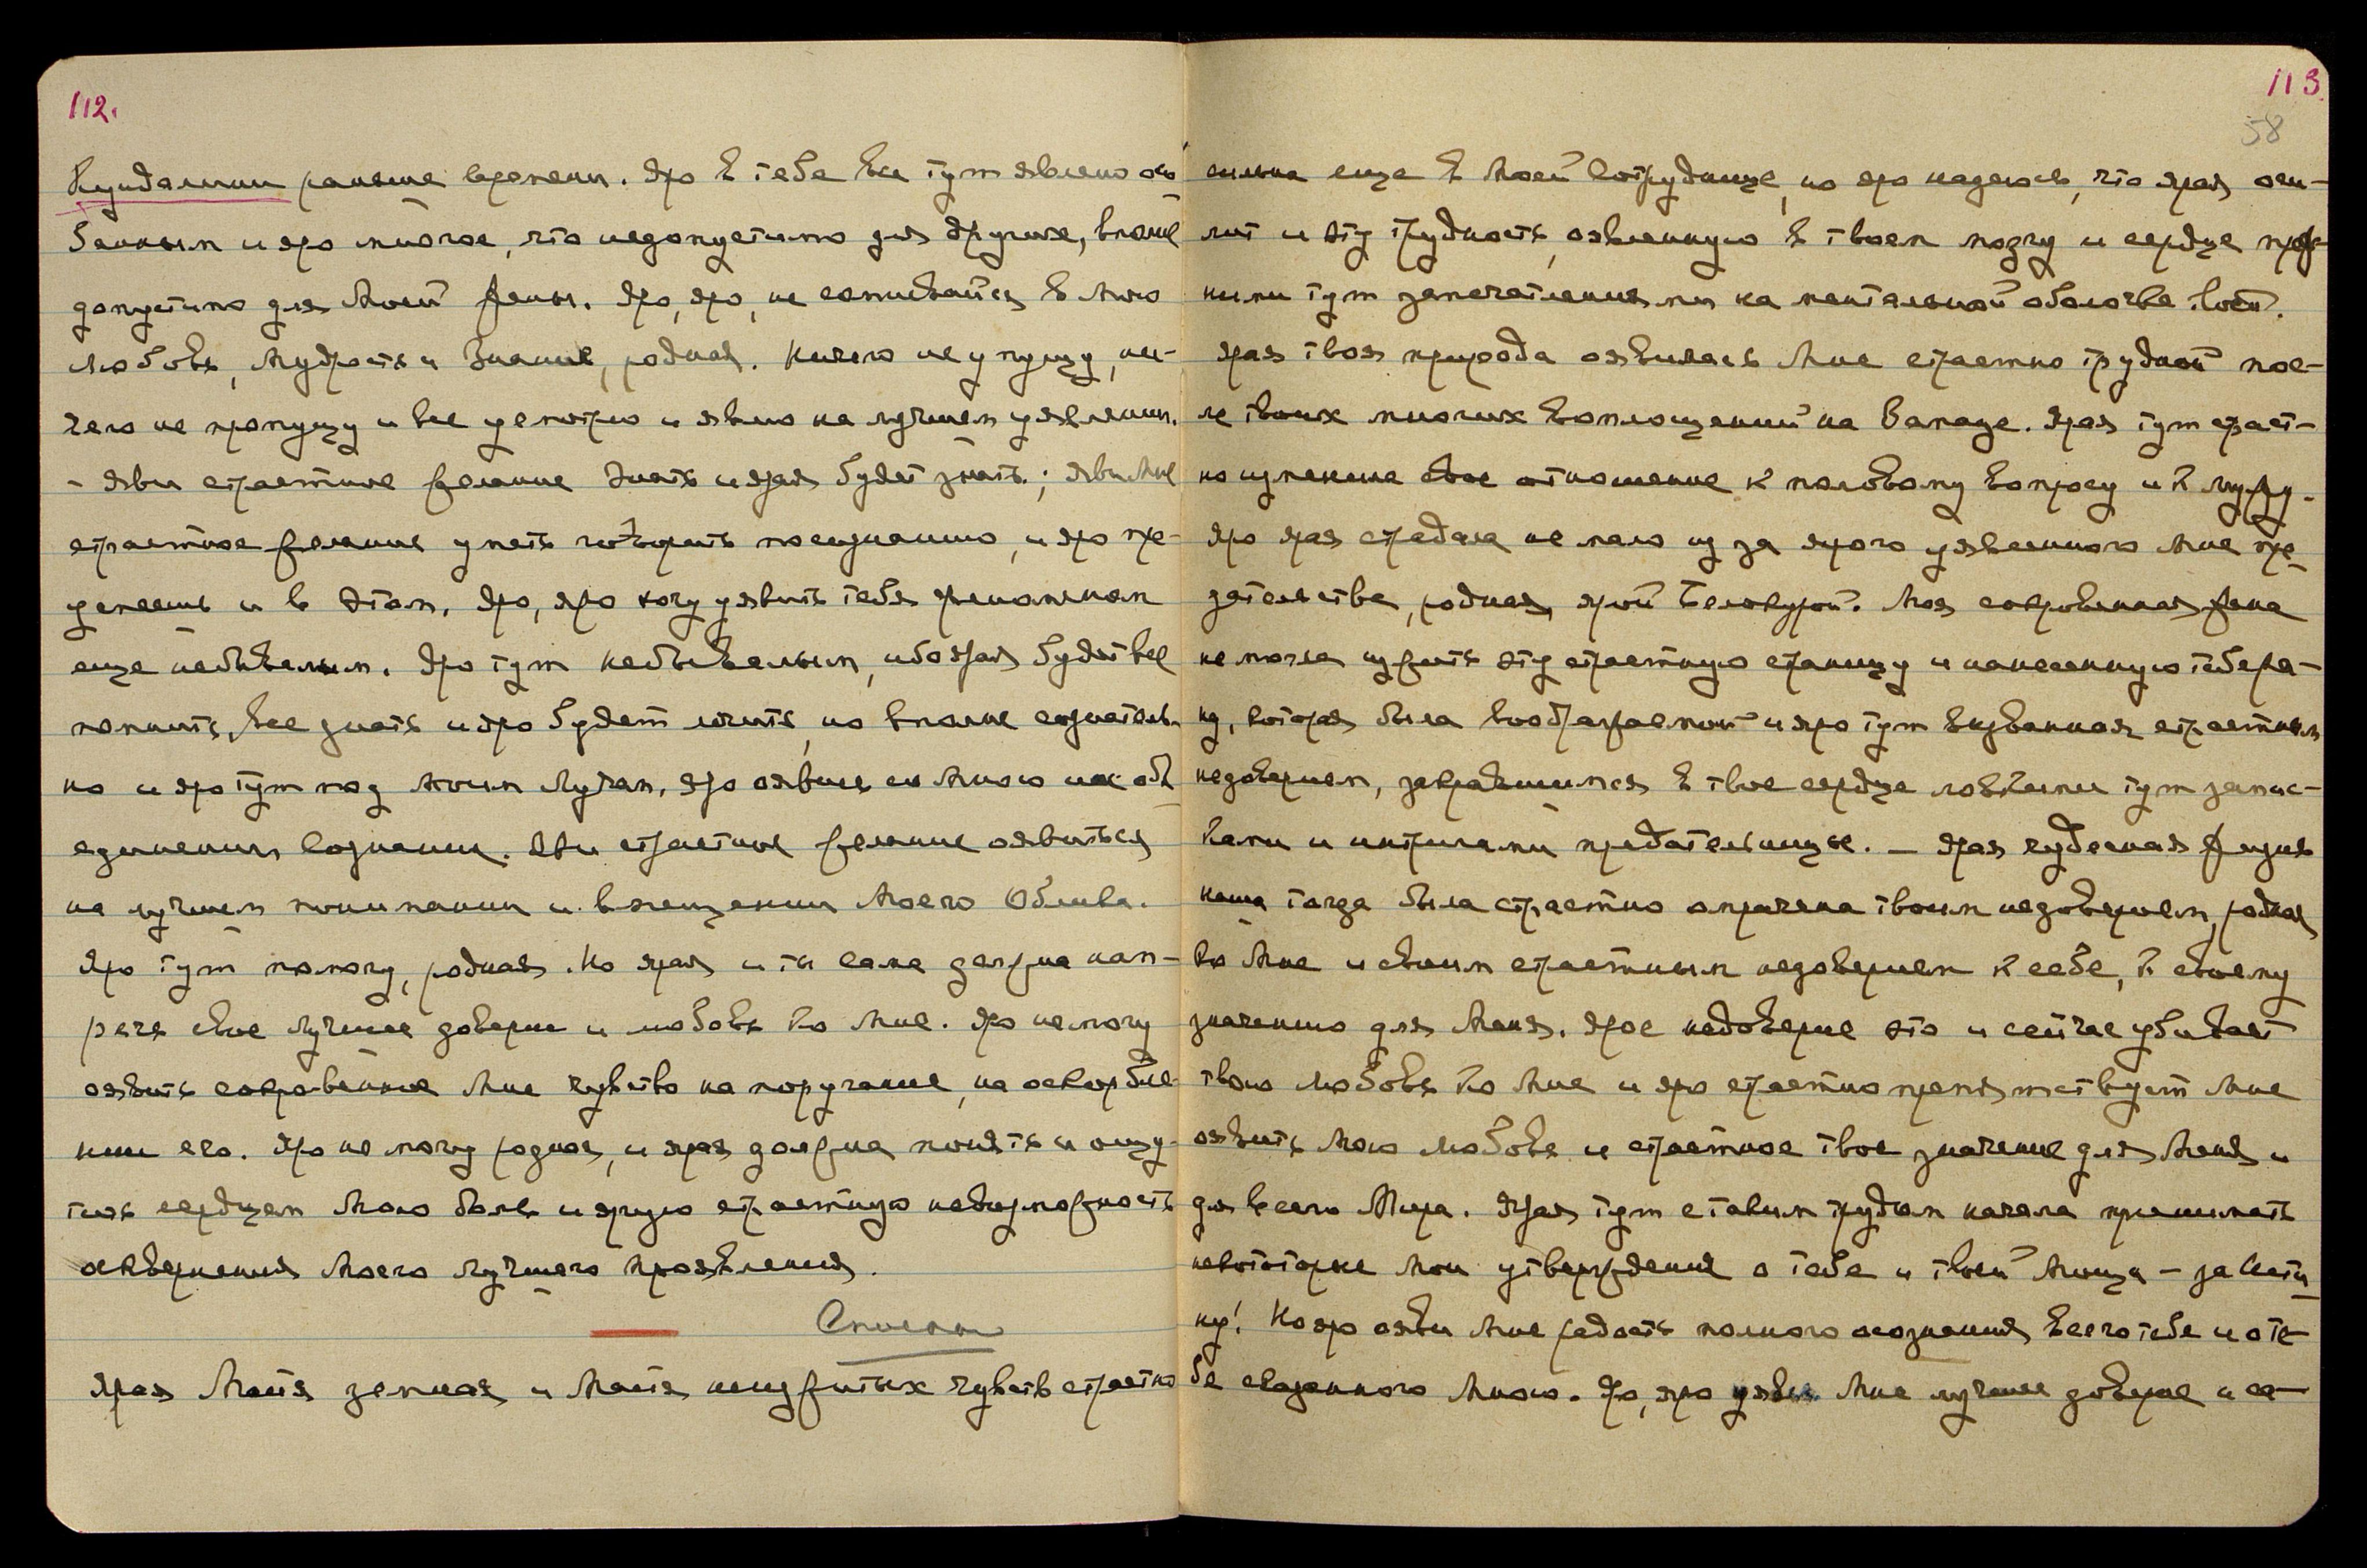 112.
Кундалини раньше времени. Яро в тебе все тут явлено осо-
бенным и яро многое, что недопустимо для других, вполне
допустимо для Моей Жены. Яро, яро, не сомневайся в Мою
Любовь, Мудрость и Знание, родная. Ничего не упущу, ни-
чего не пропущу и все усмотрю и явлю на лучшем уявлении.
- Яви страстное желание знать и ярая будет знать; яви Мне
страстное желание уметь говорить по сознанию, и яро пре-
успеешь и в этом. Яро, яро хочу уявить тебя феноменом
еще небывалым. Яро тут небывалым, ибо ярая будет все
помнить, все знать и яро будет лечить, но вполне сознатель-
но и яро тут под Моим Лучом, яро оявись со Мною на об
единении сознании. Яви страстное желание оявиться
на лучшем понимании и вмещении Моего Облика.
Яро тут помогу, родная. Но ярая и ты сама должна нап-
рячь свое лучшее доверие и любовь ко Мне. Яро не могу
оявить сокровенное Мне чувство на поругание, на оскорбле-
нии его. Яро не могу родная, и ярая должна понять и ощу-
тить сердцем Мою боль и ярую страстную невозможность
осквернения Моего лучшего проявления.
Списано
Ярая Майя земная и Майя неизжитых чувств страстно
113.
58
сильна еще в Моей Сотруднице, но яро надеюсь, что ярая оси-
лит и эту трудность, оявленную в твоем мозгу и сердце преж-
ними тут запечатлениями на ментальной оболочке твоей.
Ярая твоя природа оявилась Мне страстно трудной пос-
ле твоих многих воплощений на Западе. Ярая тут страст-
но изменила свое отношение к половому вопросу и к мужу.
Яро ярая страдала не мало из за ярого уявленного Мне пре-
дательства, родная, ярой Белокурой. Моя сокровенная Жена
не могла изжить эту страстную страницу и нанесенную тебе ра-
ну, которая была воображаемой и яро тут вызванная страстным
недоверием, закравшимся в твое сердце ловкими тут запис-
ками и интригами предательницы. — Ярая чудесная Жизнь
наша тогда была страстно омрачена твоим недоверием, родная
ко Мне и своим страстным недоверием к себе, к своему
значению для Меня. Ярое недоверие это и сейчас убивает
твою любовь ко Мне и яро страстно препятствует Мне
оявить Мою Любовь и страстное твое значение для Меня и
для всего Мира. Ярая тут с таким трудом начала принимать
некоторые Мои утверждения о тебе и твоей Мощи – за Исти-
ну! Но яро яви Мне радость полного осознания всего тебе и о те-
бе сказанного Мною. Яро, яро уяви Мне лучшее доверие и са-